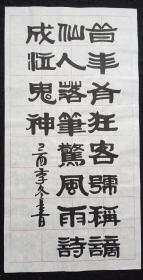 昔年有狂客號稱謫
仙人落筆驚風雨詩
成泣鬼神
己酉季冬